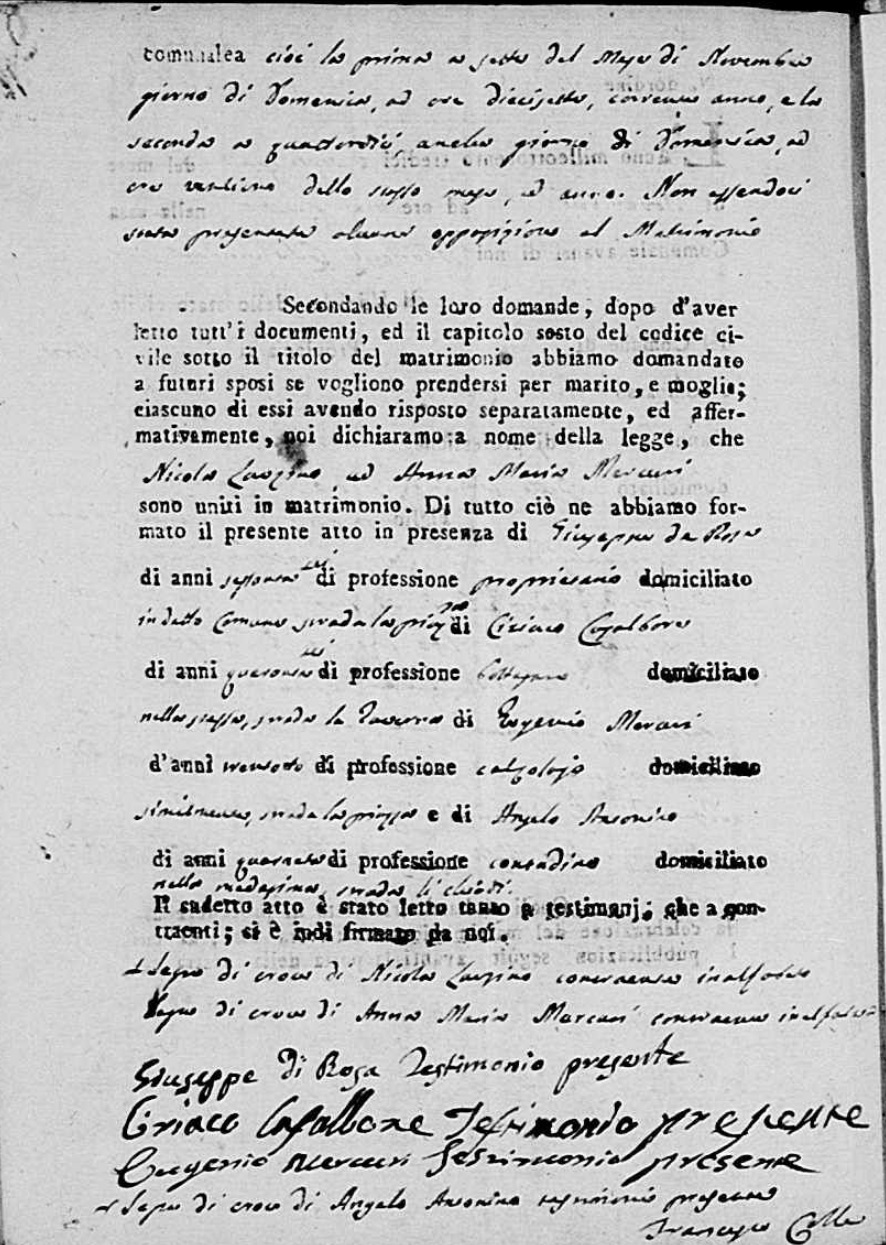 comunalea cioè la prima a sette del Mese di Novembre
giorno di Domenica, ad ore diecisette, corrente anno, e la
seconda a quattordici, anche giorno di Domenica, ad
ore ventuno dello stesso mese, ed anno. Non essendoci
stata presentata alcuna opposizione al Matrimonio
Secondando le loro domande, dopo d'aver
letto tutt'i documenti, ed il capitolo sesto del codice ci-
vile sotto il titolo del matrimonio abbiamo domandato
a futuri sposi se vogliono prendersi per marito, e moglie;
ciascuno di essi avendo risposto separatamente, ed affer-
mativamente, noi dichiaramo a nome della legge, che
Nicola ad Anna Maria Mercuri
sono uniti in matrimonio. Di tutto ciò ne abbiamo for-
mato il presente atto in presenza di Giuseppe de Rosa
di anni di professione proprietario domiciliato
in detto Comune strada la piazza di Ciriaco Casalbore
di anni di professione bottegaro domiciliato
nella stessa, strada la Taverna di Eugenio Mercuri
d'anni trentotto di professione calzolajo domiciliato
similmente, strada la piazza e di Angelo Antonino
di anni quaranta di professione contadino domiciliato
nella medesima, strada li
Il sudetto atto è stato letto tanto a testimonj, che a con-
traenti; si è indi firmato da noi.
+ Segno di croce di Nicola contraente inalfabeto
Segno di croce di Anna Maria Mercuri contraente inalfabeta
Giuseppe di Rosa Testimonio presente
Ciriaco Casalbore Testimonio presente
Eugenio Mercuri Testimonio presente
+ Segno di croce di Angelo Antonino testimonio presente
Francesco